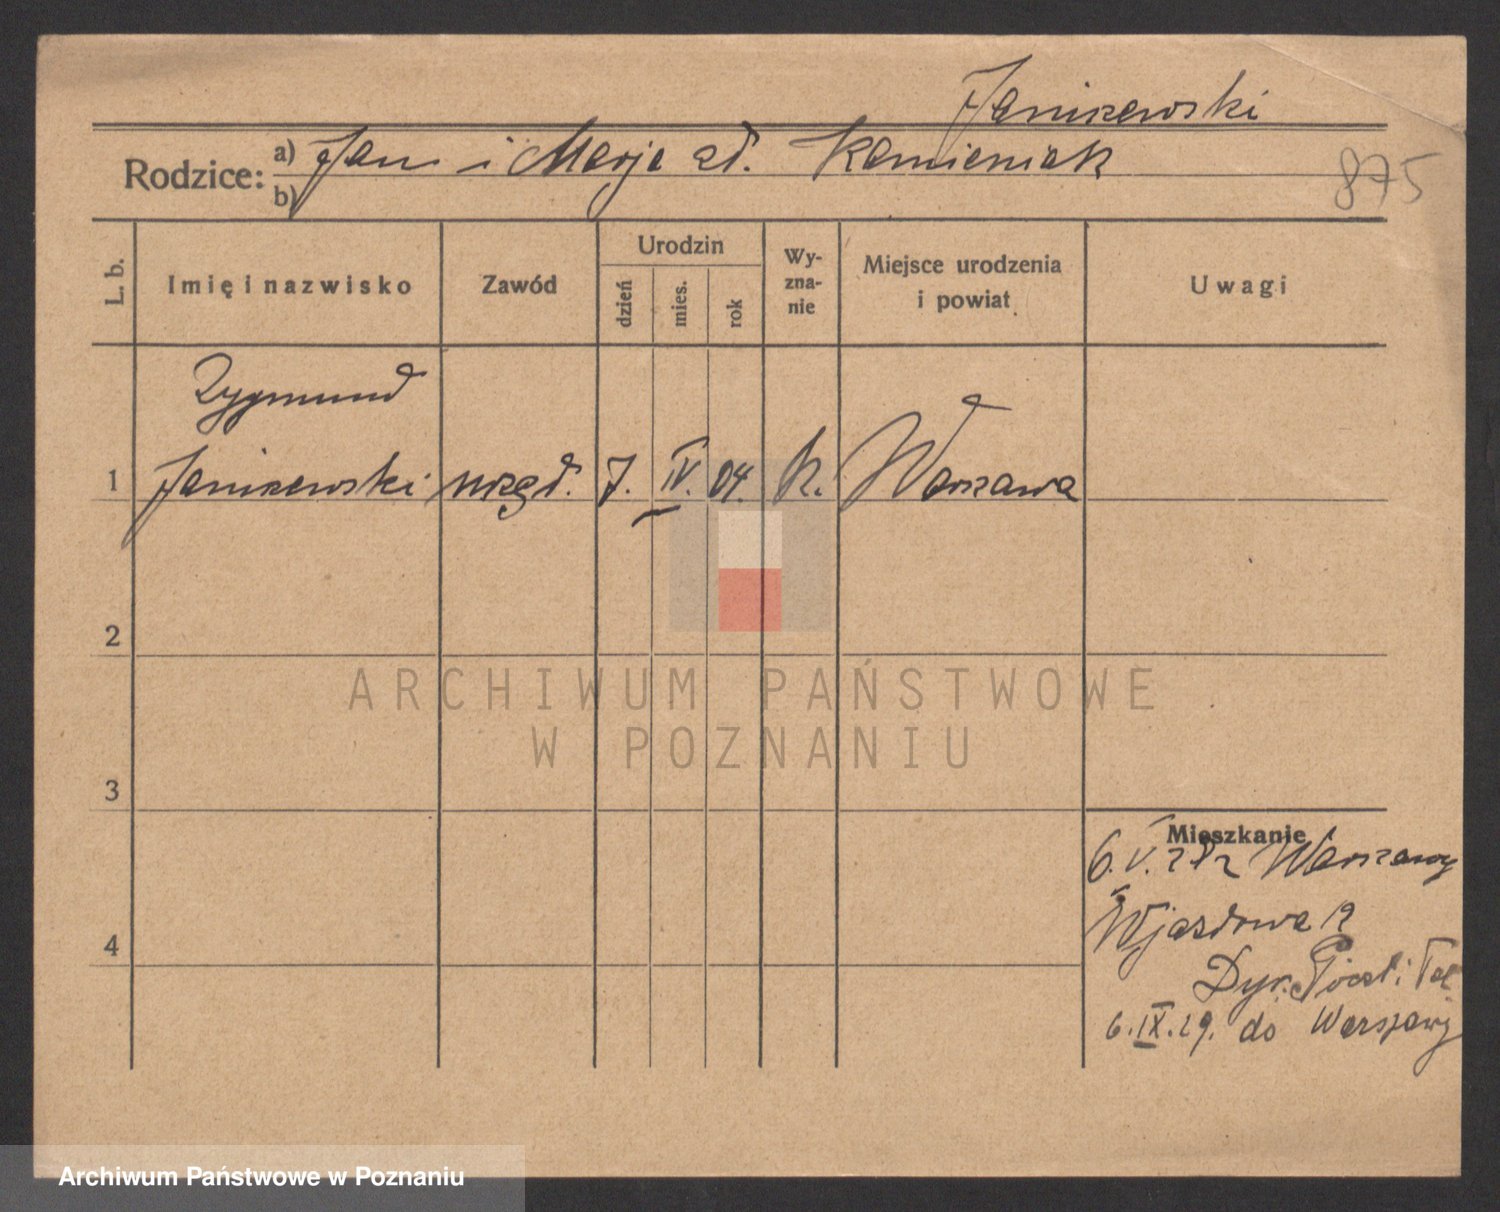 Janiszewski
Rodzice: a) Jan i Marja zd. Kamieniak
b)
875
L. b. Imię i nazwisko Zawód Urodzin dzień mies. rok Wyzna-nie Miejsce urodzenia i powiat Uwagi
Zygmund
1 Janiszewski urzęd. 7. IV. 04. k. Warszawa
2
ARCHIWUM PAŃSTWOWE
W POZNANIU
3
Mieszkanie
6. V. 28 z Warszawy
Wjazdowa 12
4
Dyr. Poczt i Tel
6. IX. 29. do Warszawy
Archiwum Państwowe w Poznaniu